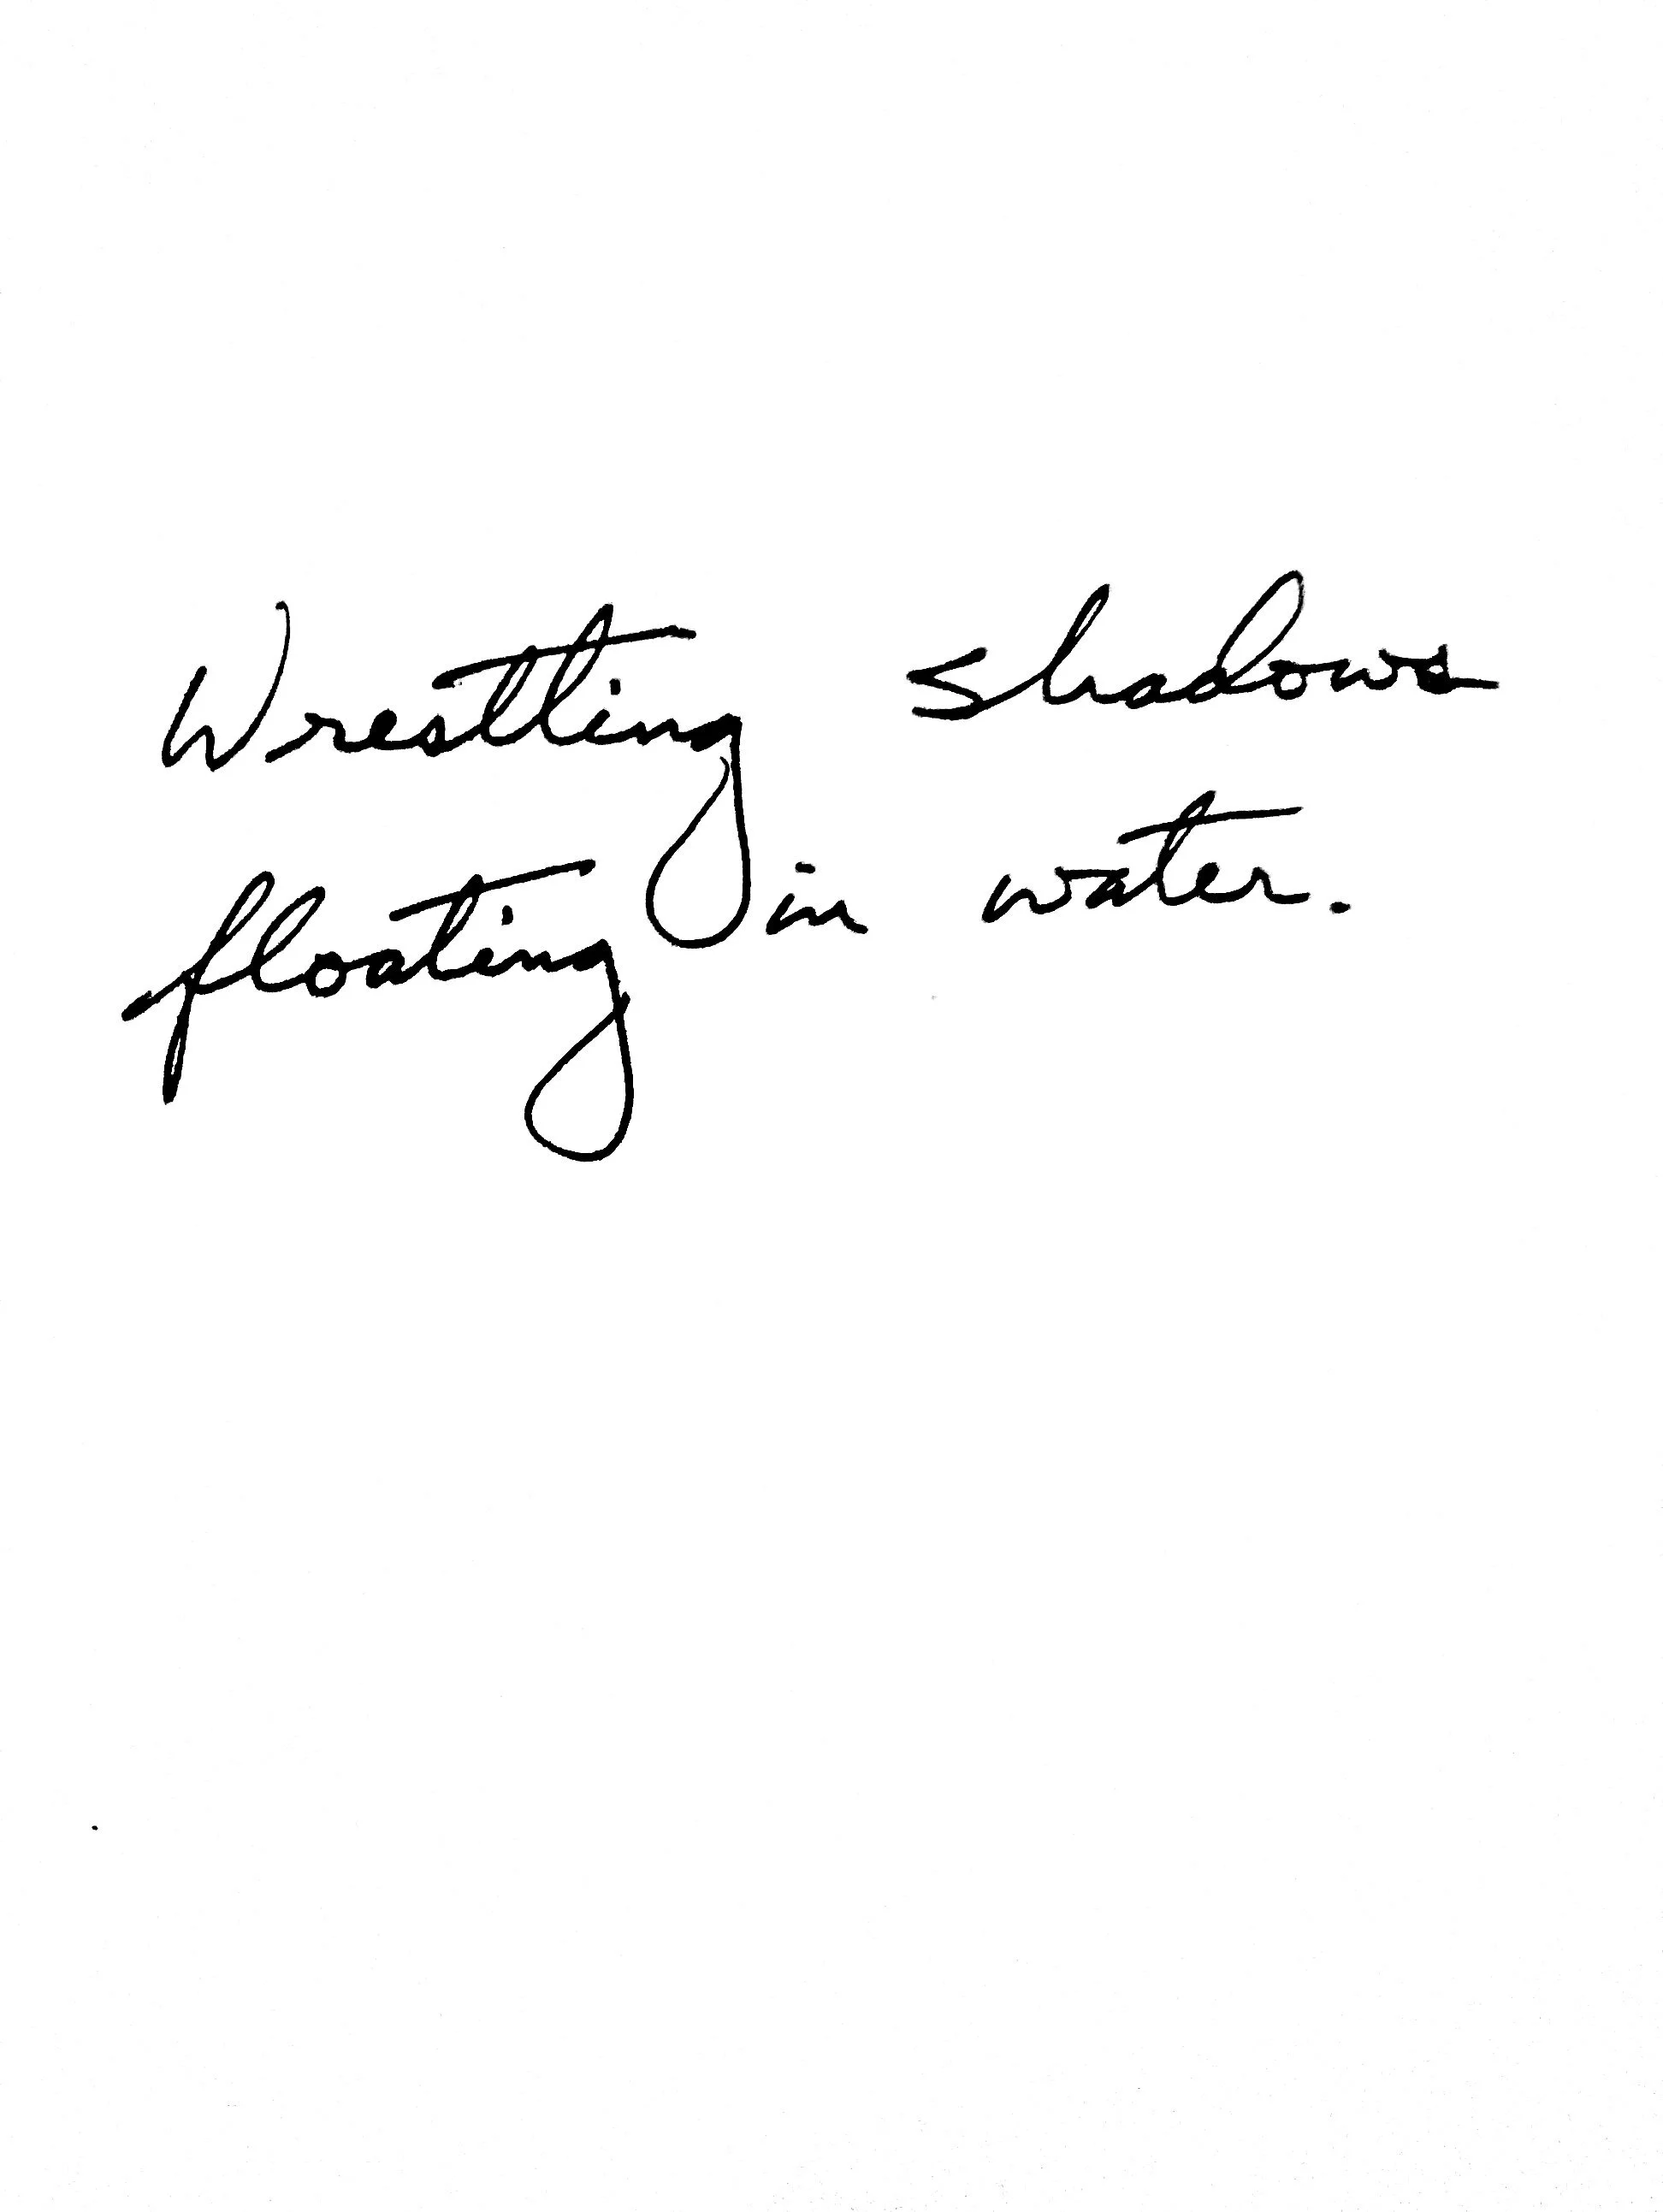 Wrestling shadows
floating in water.